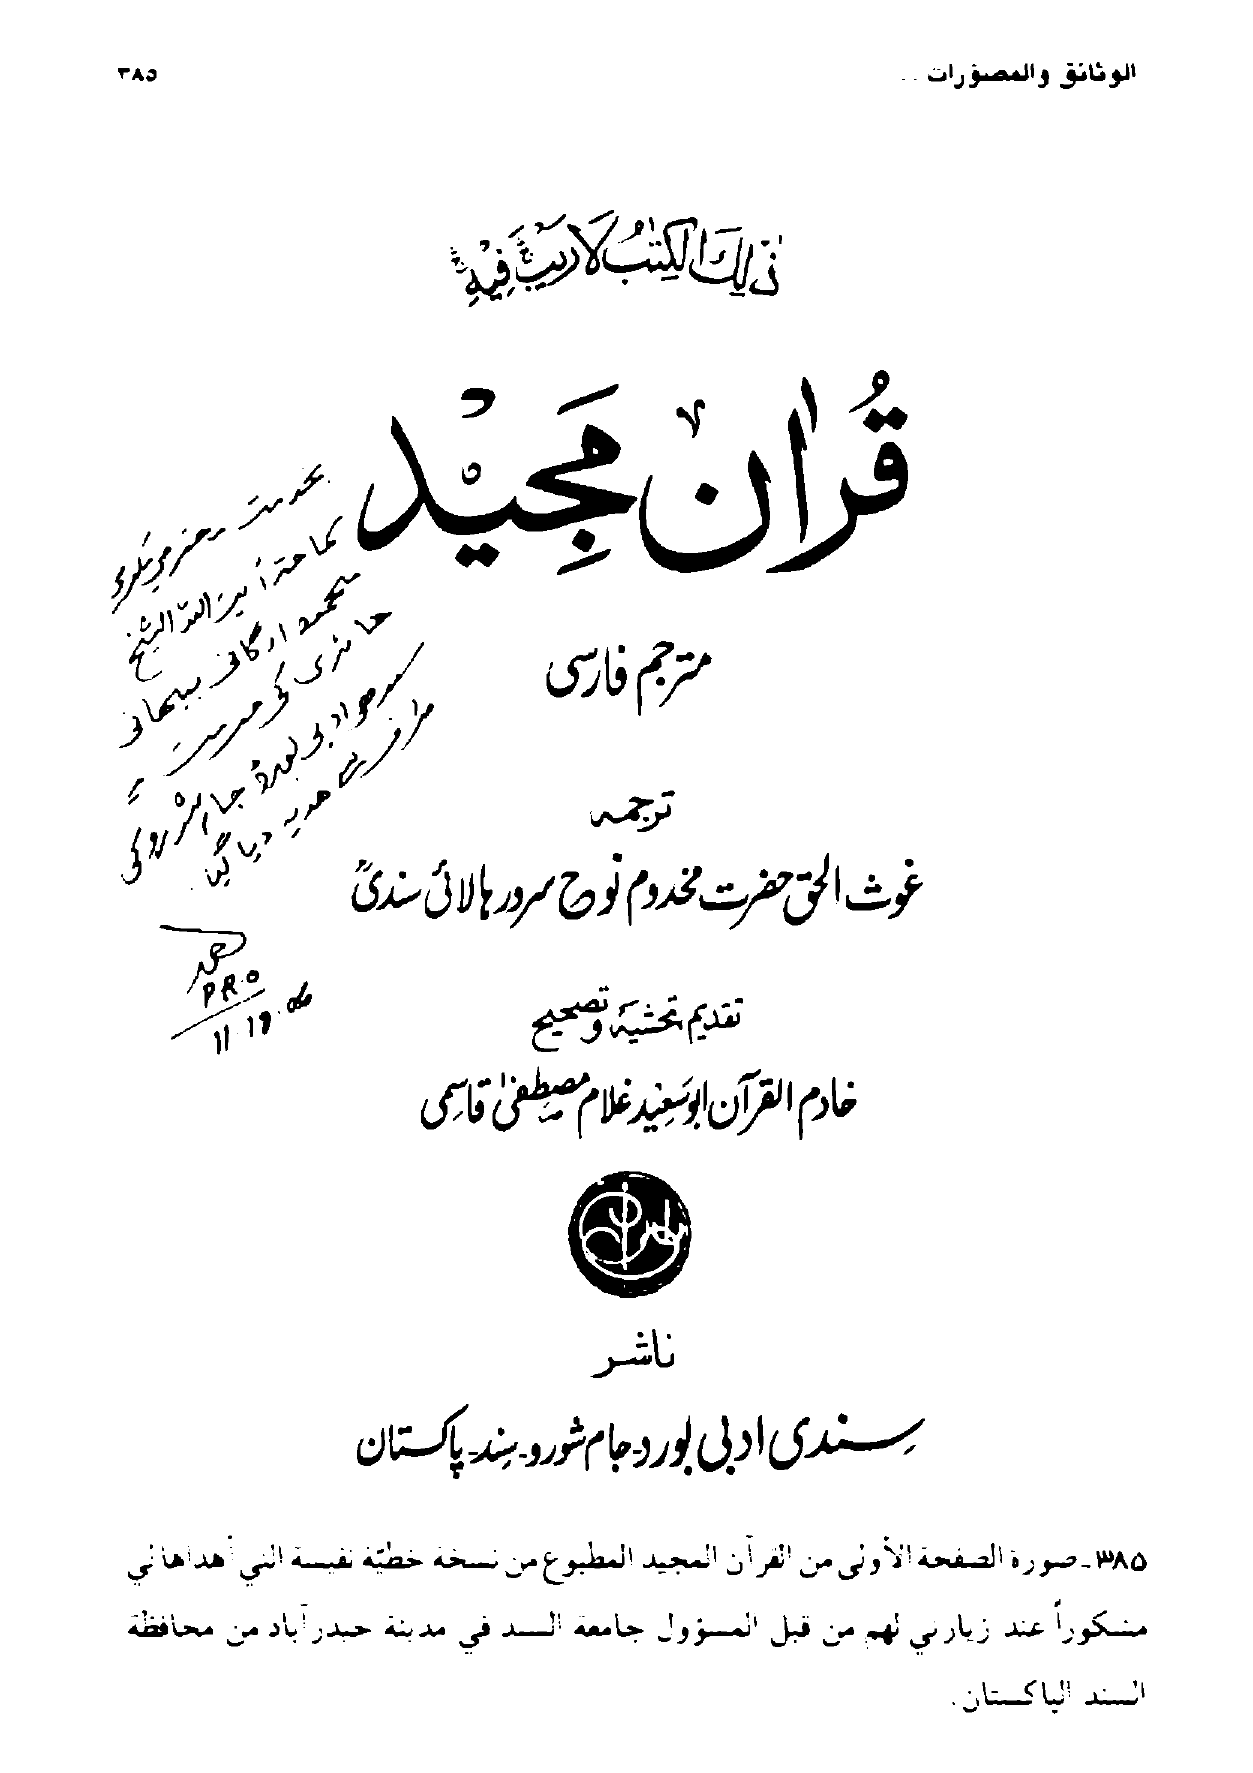 الوثائق والمصوّرات ..
٣٨٥
ذٰلِكَ الْكِتٰبُ لَا رَيْبَ فِيْهِ
قُرْاٰن مَجِيْد
مترجم فارسی
ترجمہ
غوث الحق حضرت مخدوم نوح سرور ہالائی سندیؒ
تقدیم تحشیہ و تصحیح
خادم القرآن ابو سعید غلام مصطفیٰ قاسمی
ناشر
سندی ادبی بورد۔ جام شورو۔ سند۔ پاکستان
بخدمت
الشیخ
محمود
حائری کی خدمت
ادبی بورڈ جامشورو کی
طرف سے ھدیہ دیا گیا
P R O
11
٣٨٥ـ صورة الصفحة الأولى من القرآن المجيد المطبوع من نسخة خطيّة نفيسة التي أهداها لي
مشكوراً عند زيارتي لهم من قبل المسؤول جامعة السند في مدينة حيدرآباد من محافظة
السند الپاكستان.